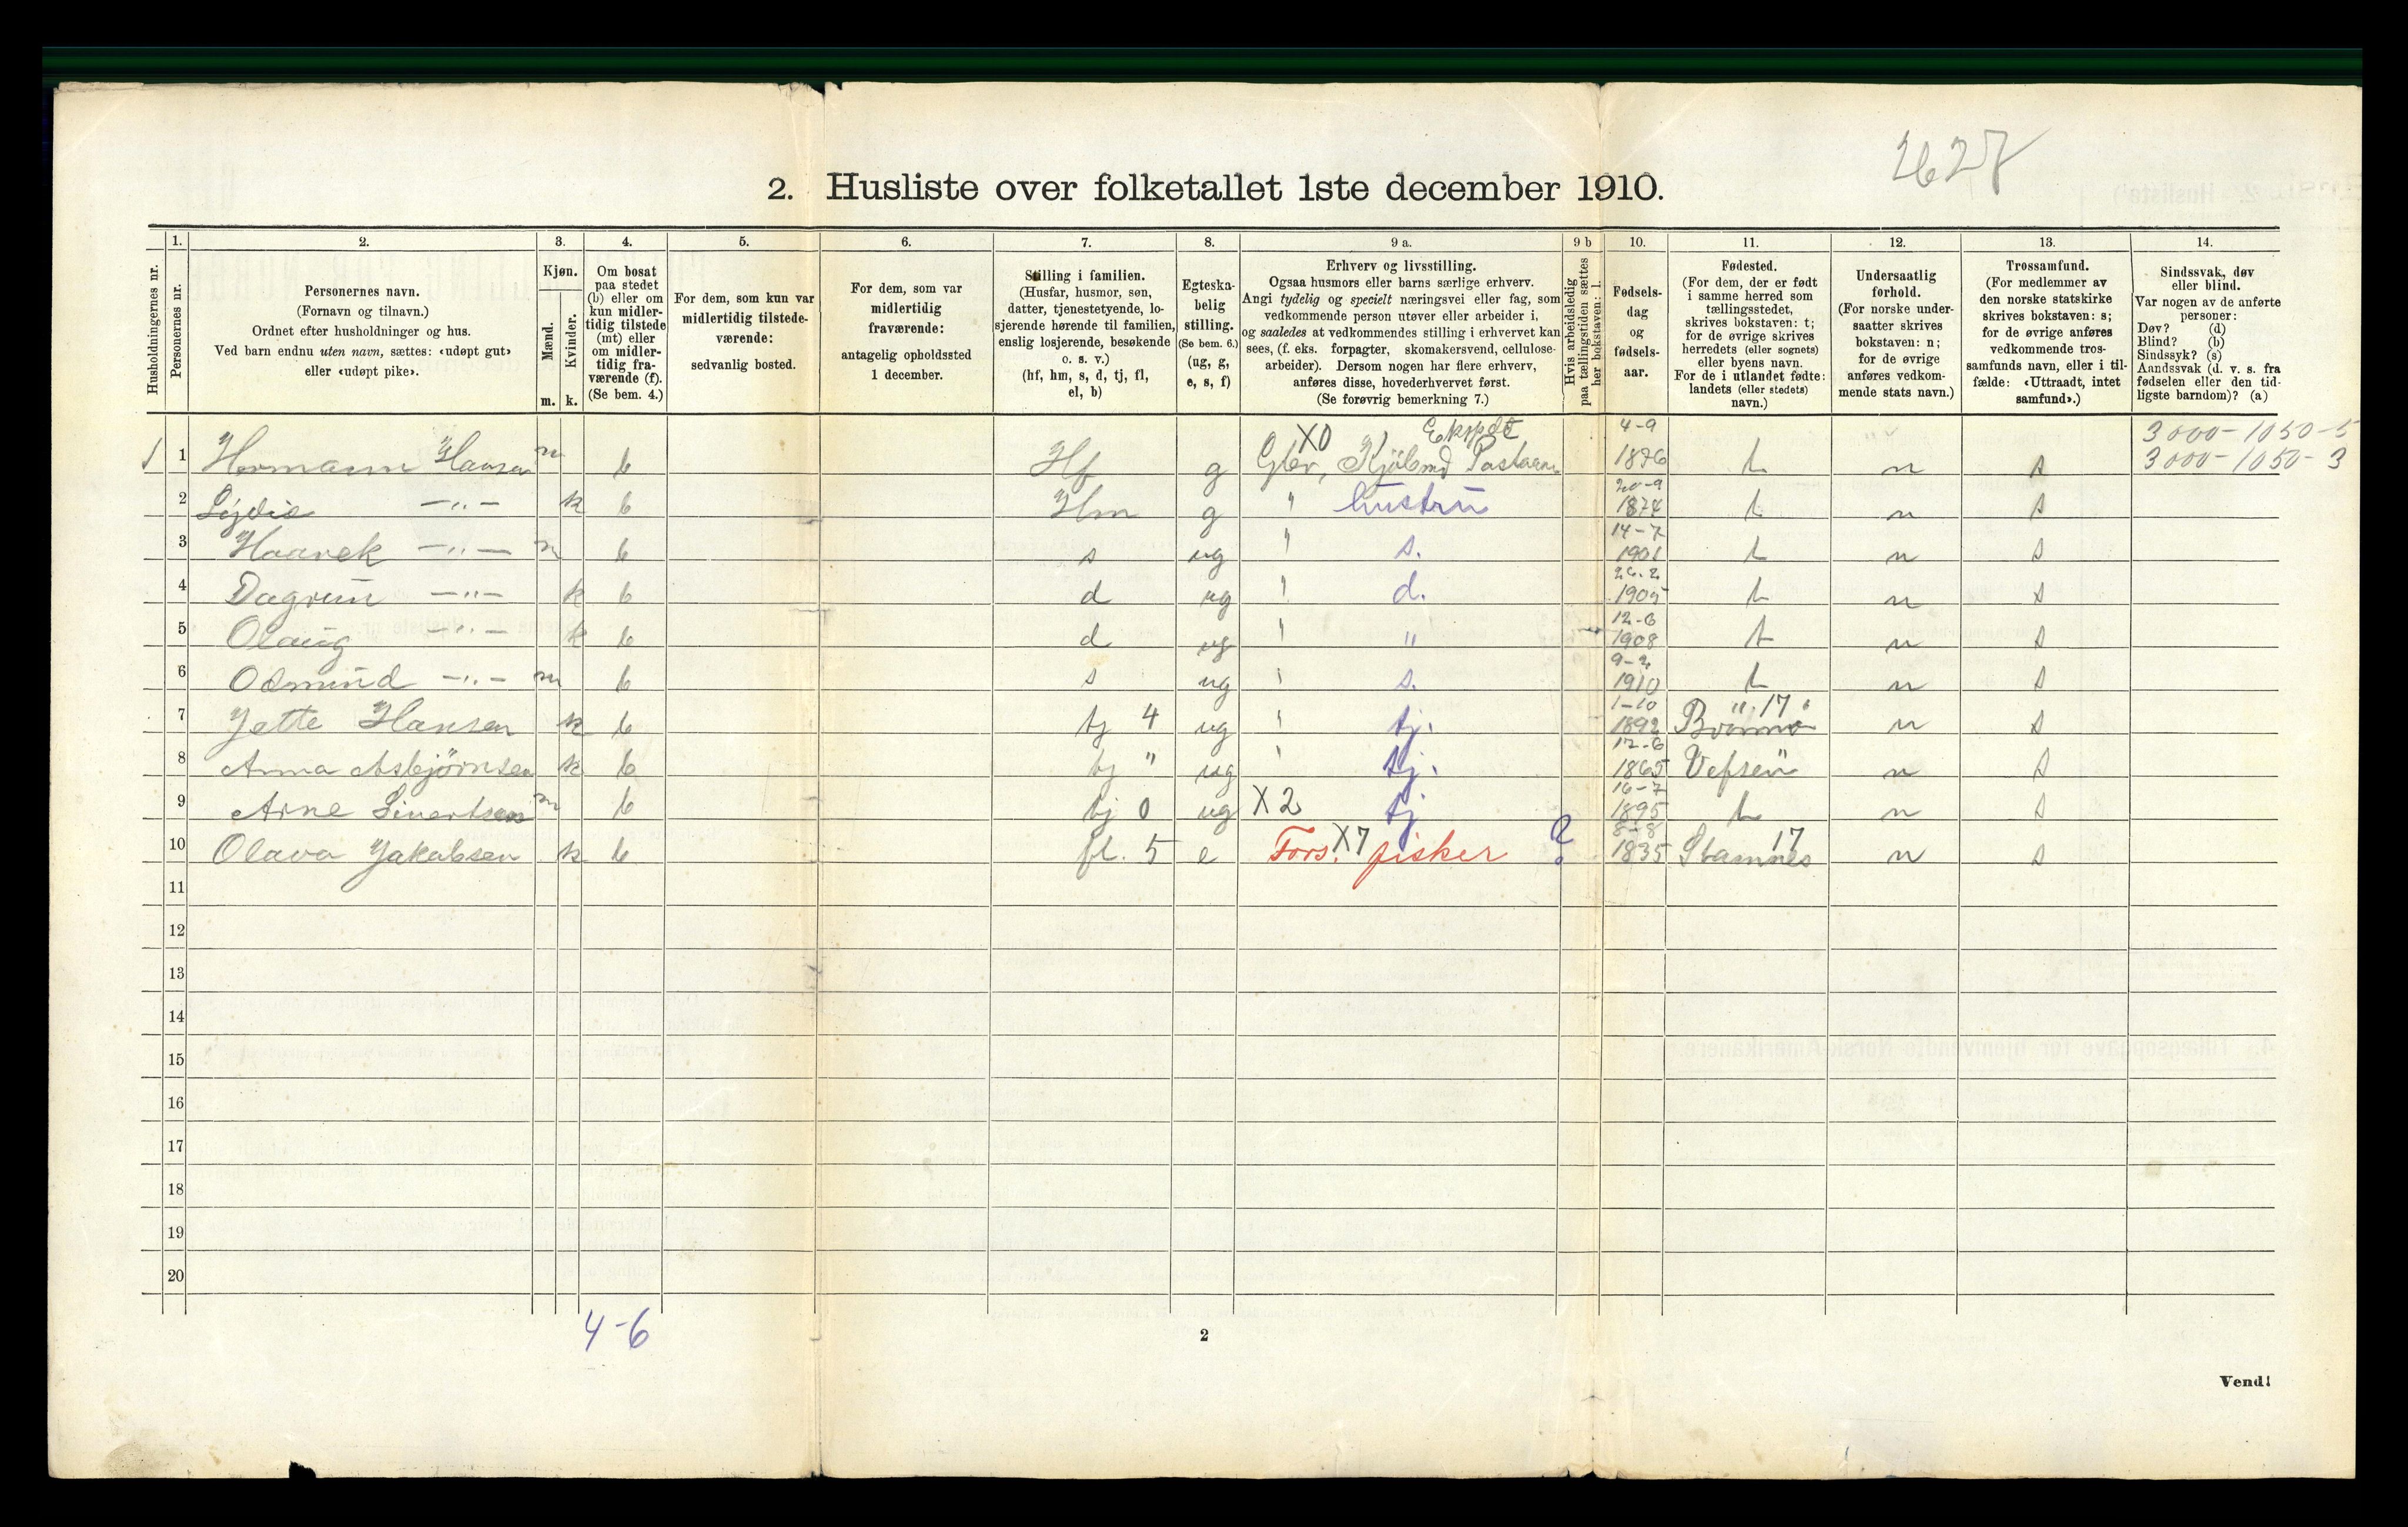 2627
2. Husliste over folketallet 1ste december 1910.
Husholdningernes nr.
1.
Personernes nr.
2.
Personernes navn.
(Fornavn og tilnavn.)
Ordnet efter husholdninger og hus.
Ved barn endnu uten navn, sættes: «udøpt gut»
eller «udøpt pike».
3.
Kjøn.
Mænd.
Kvinder.
m. k.
4.
Om bosat
paa stedet
(b) eller om
kun midler-
tidig tilstede
(mt) eller
om midler-
tidig fra-
værende (f).
(Se bem. 4.)
5.
For dem, som kun var
midlertidig tilstede-
værende:
sedvanlig bosted.
6.
For dem, som var
midlertidig
fraværende:
antagelig opholdssted
1 december.
7.
Stilling i familien.
(Husfar, husmor, søn,
datter, tjenestetyende, lo-
sjerende hørende til familien,
enslig losjerende, besøkende
o. s. v.)
(hf, hm, s, d, tj, fl,
el, b)
8.
Egteska-
belig
stilling.
(Se bem. 6.)
(ug, g,
e, s, f)
9 a.
Erhverv og livsstilling.
Ogsaa husmors eller barns særlige erhverv.
Angi tydelig og specielt næringsvei eller fag, som
vedkommende person utøver eller arbeider i,
og saaledes at vedkommendes stilling i erhvervet kan
sees, (f. eks. forpagter, skomakersvend, cellulose-
arbeider). Dersom nogen har flere erhverv,
anføres disse, hovederhvervet først.
(Se forøvrig bemerkning 7.)
9 b
Hvis arbeidsledig
paa tællingstiden sættes
her bokstaven: l.
10.
Fødsels-
dag
og
fødsels-
aar.
11.
Fødested.
(For dem, der er født
i samme herred som
tællingsstedet,
skrives bokstaven: t;
for de øvrige skrives
herredets (eller sognets)
eller byens navn.
For de i utlandet fødte:
landets (eller stedets)
navn.)
12.
Undersaatlig
forhold.
(For norske under-
saatter skrives
bokstaven: n;
for de øvrige
anføres vedkom-
mende stats navn.)
13.
Trossamfund.
(For medlemmer av
den norske statskirke
skrives bokstaven: s;
for de øvrige anføres
vedkommende tros-
samfunds navn, eller i til-
fælde: «Uttraadt, intet
samfund».)
14.
Sindssvak, døv
eller blind.
Var nogen av de anførte
personer:
Døv? (d)
Blind? (b)
Sindssyk? (s)
Aandssvak (d. v. s. fra
fødselen eller den tid-
ligste barndom)? (a)
X0 Ekspdt 4-9 3000-1050-5
1 1 Hermann Hansen m b Hf g Kjøbmd 1876 t n s 3000-1050-3
20-9
2 - " - k b Hm g " hustru 1874 t n s
14-7
3 Haarek - " - m b s ug " s. 1901 t n s
26-2
4 Dagrun - " - k b d ug " d. 1905 t n s
12-6
5 Olaug - " - k b d ug " " 1908 t n s
9-2
6 Odmund - " - m b s ug " s. 1910 t n s
1-10 " 17
7 Jette Hansen k b tj 4 ug " tj. 1892 Brønnø n s
12-6
8 Anna Asbjørnsen k b tj " ug " tj. 1865 Vefsen n s
16-7
9 Arne Sivertsen m b tj 0 ug X2 tj 1895 t n s
8-8 17
10 Olava Jakobsen k b fl. 5 e Fors. X7 fisker ? 1835 Stamnes n s
11
12
13
14
15
16
17
18
19
20
4-6
2
Vend!